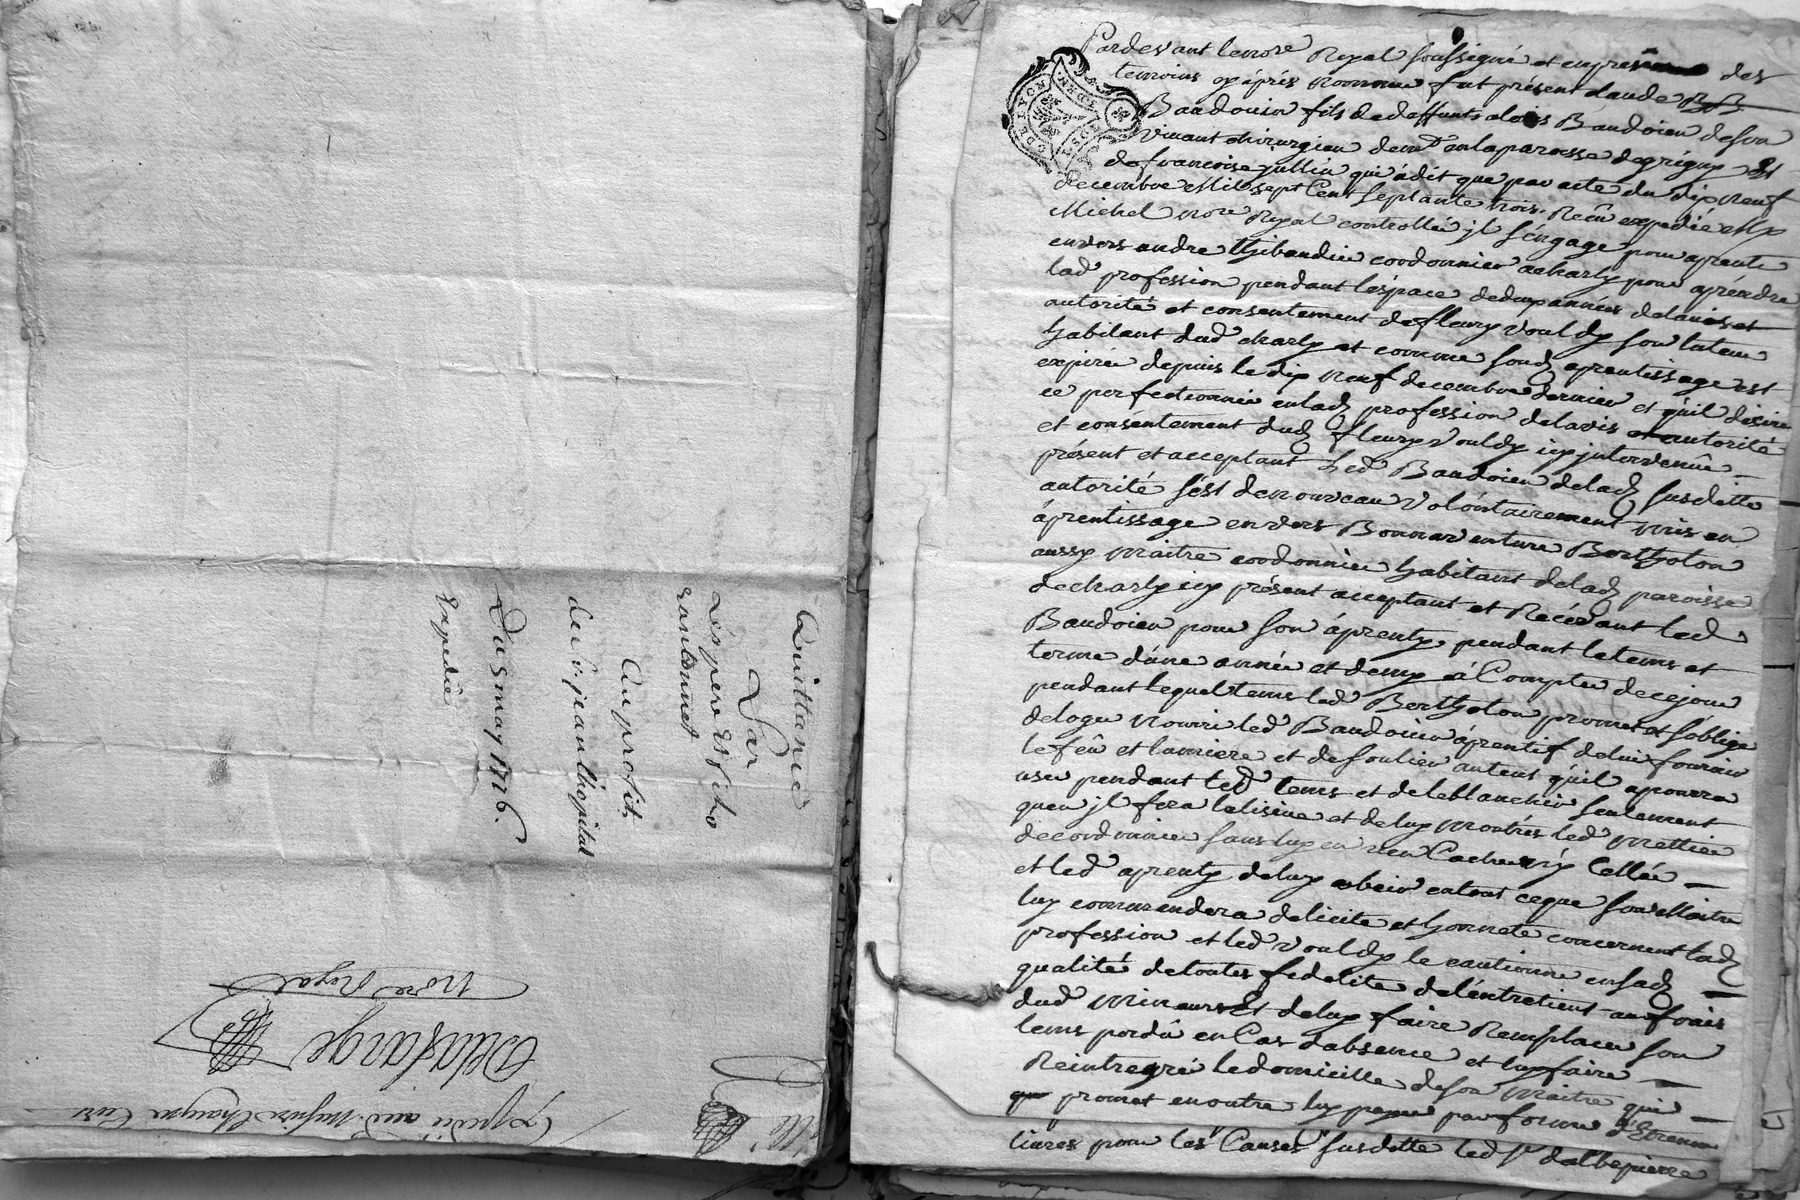 Quittance
Par
antonnet
Au profit
de Sr jean lhopital
Du 5 may 1776.
Expedié
Expedié aud.
Delafarge
Nore Royal
Pardevant le nore Royal soussigné et en présence des
temoins cy áprés nommé fut présent claude
Baudouin fils de deffunts alois Baudoien de son
vivant chirurgien demt en la paroisse de grigny et
de francoise jullin qui á dit que par acte du dix neuf
decembre Mil sept Cent septante trois. Reçû expedié
Michel nore Royal controllé jl s'engage pour aprenti
envers andre Thibaudier cordonnier a charly pour apréndre
lad profession pendant léspace de deux années de lavis et
autorité et consentement de fleury vouldy son tuteur
habitant dud charly et comme sond aprentissage est
expirée depuis le dix neuf decembre dernier et qúil désire
ce perfectionner én lad profession de lavis et autorité
et consentement dud fleury vouldy icy jntervenû
présent et acceptant led Baudoien de lad susditte
autorité s'ést de nouveau volontairement mis en
áprentissage envers Bonnaventure Bertholon
aussy maitre cordonnier habitant de lad paroisse
de charly icy présent acceptant et Récévant led
Baudoien pour son áprenty, pendant le tems et
terme dúne année et demy á Compter de ce jour
pendant lequel tems led Bertholon promet et s'oblige
de loger nourrir led Baudoien áprentif de lui fournir
le feû et lumiere et de soulier autent qúil a pourra
user pendant led tems et de le blanchir seulement
quen jl fera la lisive et de luy montrés led mettier
de cordonnier sans luy en rien Cacher ny Cellée
et led aprenty de luy obeir en tout ceque son Maitre
luy commendera de licite et honnete concernent lad
profession et led vouldy le cautionne en sad
qualité de toutes fidelite de léntretient aux frais
dud mineurs et de luy faire Remplacer son
tems perdû en Cas d'absence et luy faire
Reintregré le domicille de son maitre qui
promet en outre luy payer par forme d'Etrenne
livres pour les Causes susditte led Sr dalbepierre